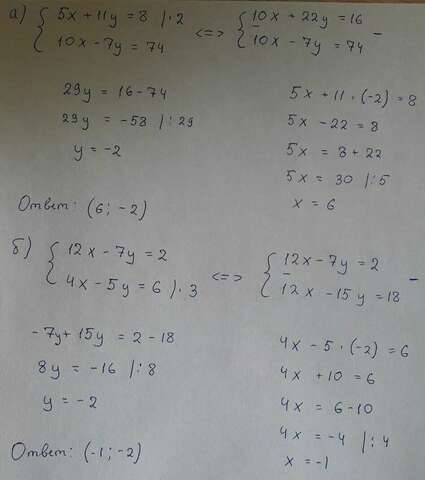 а) { 5x + 11y = 8 |·2 <=> { 10x + 22y = 16
10x - 7y = 74 10x - 7y = 74 -
29y = 16 - 74
29y = -58 |:29
y = -2
5x + 11·(-2) = 8
5x - 22 = 8
5x = 8 + 22
5x = 30 |:5
x = 6
Ответ: (6; -2)
б) { 12x - 7y = 2 <=> { 12x - 7y = 2
4x - 5y = 6 |·3 12x - 15y = 18 -
-7y + 15y = 2 - 18
8y = -16 |:8
y = -2
4x - 5·(-2) = 6
4x + 10 = 6
4x = 6 - 10
4x = -4 |:4
x = -1
Ответ: (-1; -2)